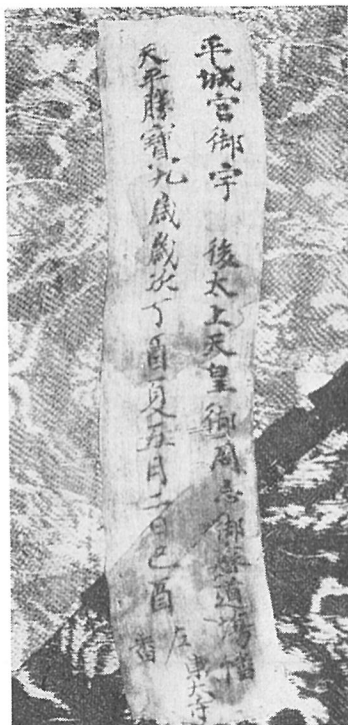 平城宮御宇 後太上天皇御周忌御齋道場幡
東大寺
天平勝寶九歳歳次丁酉夏五月二日己酉
左番